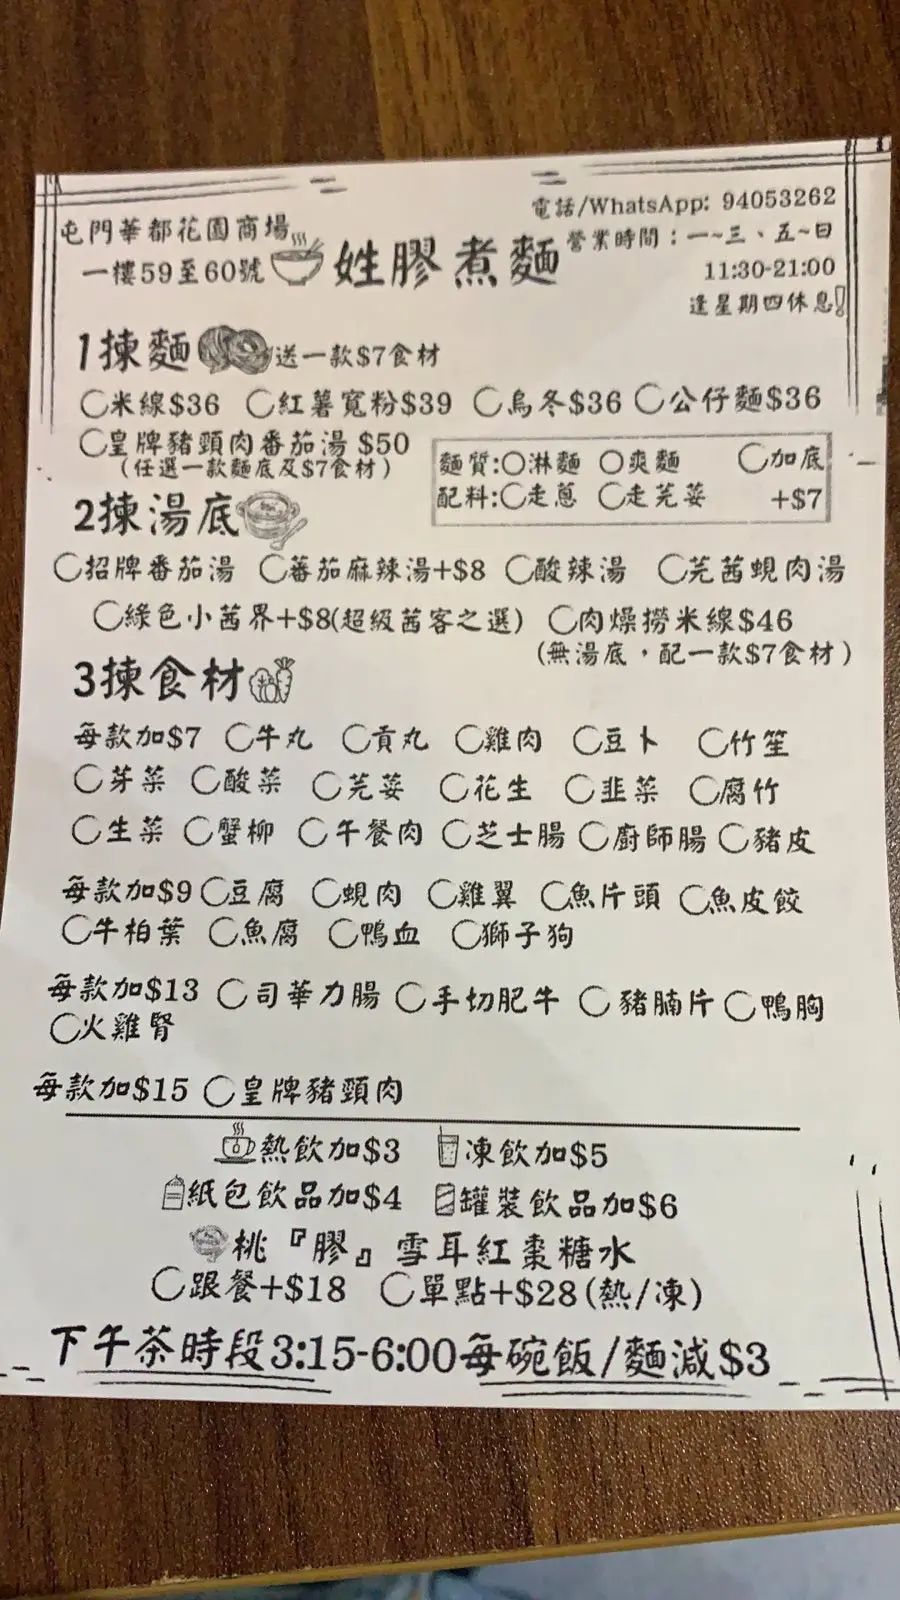 屯門華都花園商場
一樓59至60號
姓膠煮麵
電話/WhatsApp: 94053262
營業時間：一~三、五~日
11:30-21:00
逢星期四休息!
1揀麵 送一款$7食材
〇米線$36 〇紅薯寬粉$39 〇烏冬$36 〇公仔麵$36
〇皇牌豬頸肉番茄湯 $50
(任選一款麵底及$7食材)
麵質:〇淋麵 〇爽麵 〇加底
配料:〇走蔥 〇走芫荽 +$7
2揀湯底
〇招牌番茄湯 〇蕃茄麻辣湯+$8 〇酸辣湯 〇芫茜蜆肉湯
〇綠色小茜界+$8(超級茜客之選) 〇肉燥撈米線$46
(無湯底，配一款$7食材)
3揀食材
每款加$7 〇牛丸 〇貢丸 〇雞肉 〇豆卜 〇竹笙
〇芽菜 〇酸菜 〇芫荽 〇花生 〇韭菜 〇腐竹
〇生菜 〇蟹柳 〇午餐肉 〇芝士腸 〇廚師腸 〇豬皮
每款加$9 〇豆腐 〇蜆肉 〇雞翼 〇魚片頭 〇魚皮餃
〇牛柏葉 〇魚腐 〇鴨血 〇獅子狗
每款加$13 〇司華力腸 〇手切肥牛 〇豬腩片 〇鴨胸
〇火雞腎
每款加$15 〇皇牌豬頸肉
熱飲加$3 凍飲加$5
紙包飲品加$4 罐裝飲品加$6
桃『膠』雪耳紅棗糖水
〇跟餐+$18 〇單點+$28(熱/凍)
下午茶時段3:15-6:00每碗飯/麵減$3